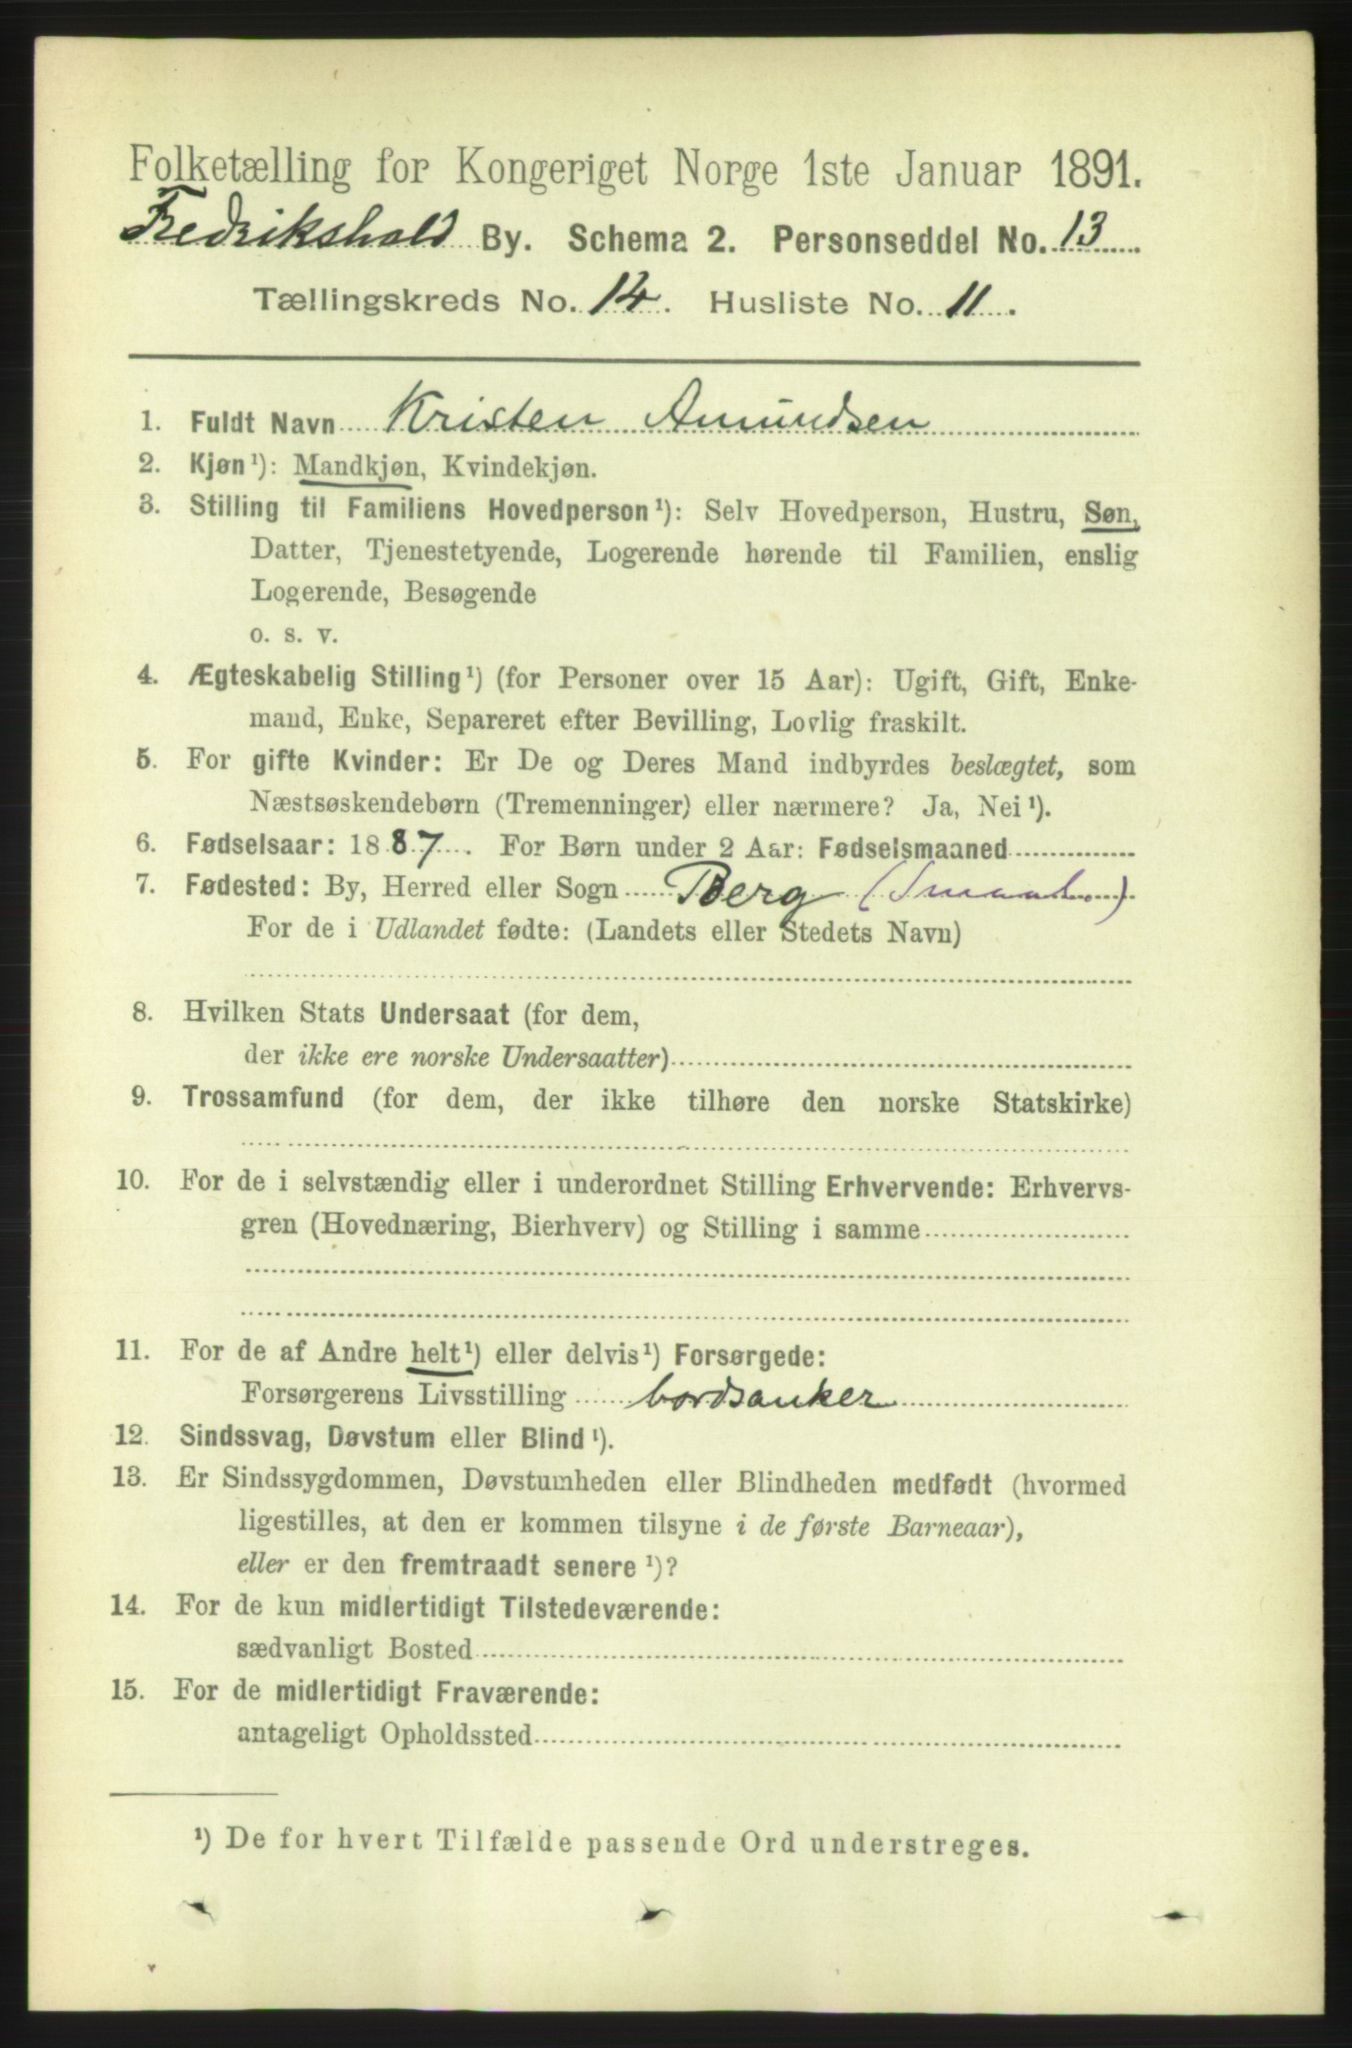 Folketælling for Kongeriget Norge 1ste Januar 1891.
Fredrikshald By. Schema 2. Personseddel No. 13
Tællingskreds No. 14. Husliste No. 11.
1. Fuldt Navn Kristen Amundsen
2. Kjøn¹): Mandkjøn, Kvindekjøn.
3. Stilling til Familiens Hovedperson¹): Selv Hovedperson, Hustru, Søn,
Datter, Tjenestetyende, Logerende hørende til Familien, enslig
Logerende, Besøgende
o. s. v.
4. Ægteskabelig Stilling¹) (for Personer over 15 Aar): Ugift, Gift, Enke-
mand, Enke, Separeret efter Bevilling, Lovlig fraskilt.
5. For gifte Kvinder: Er De og Deres Mand indbyrdes beslægtet, som
Næstsøskendebørn (Tremenninger) eller nærmere? Ja, Nei¹).
6. Fødselsaar: 1887. For Børn under 2 Aar: Fødselsmaaned
7. Fødested: By, Herred eller Sogn Berg (Smaal.)
For de i Udlandet fødte: (Landets eller Stedets Navn)
8. Hvilken Stats Undersaat (for dem,
der ikke ere norske Undersaatter)
9. Trossamfund (for dem, der ikke tilhøre den norske Statskirke)
10. For de i selvstændig eller i underordnet Stilling Erhvervende: Erhvervs-
gren (Hovednæring, Bierhverv) og Stilling i samme
11. For de af Andre helt¹) eller delvis¹) Forsørgede:
Forsørgerens Livsstilling bordsanker
12. Sindssvag, Døvstum eller Blind¹).
13. Er Sindssygdommen, Døvstumheden eller Blindheden medfødt (hvormed
ligestilles, at den er kommen tilsyne i de første Barneaar),
eller er den fremtraadt senere¹)?
14. For de kun midlertidigt Tilstedeværende:
sædvanligt Bosted
15. For de midlertidigt Fraværende:
antageligt Opholdssted
¹) De for hvert Tilfælde passende Ord understreges.